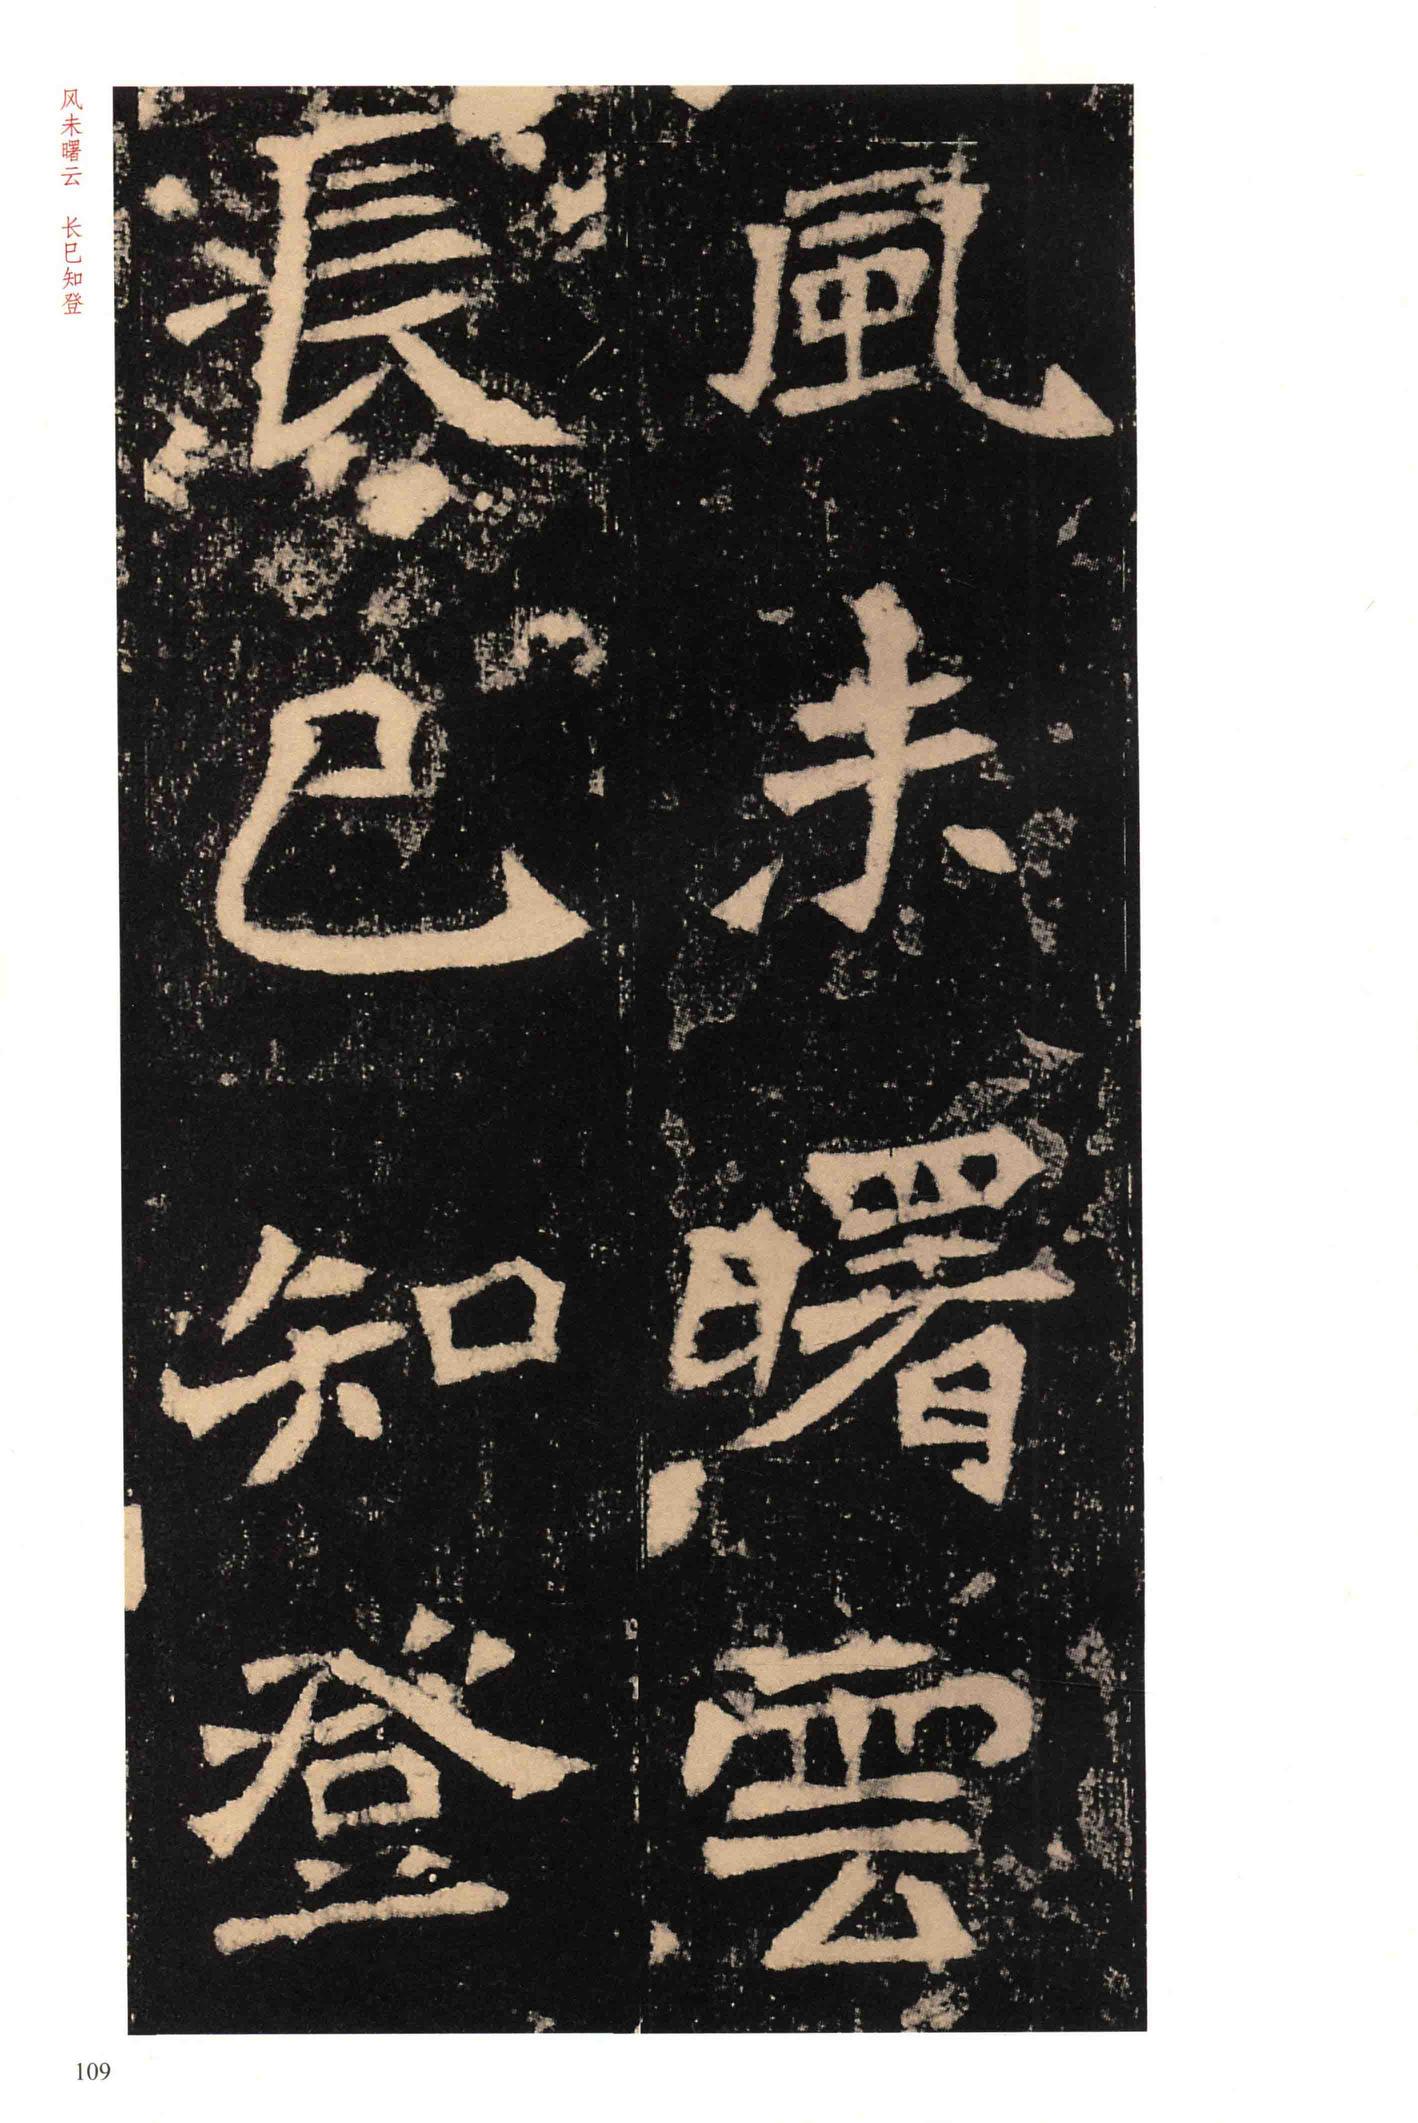 風未曙雲
長已知登
风未曙云　长已知登
109